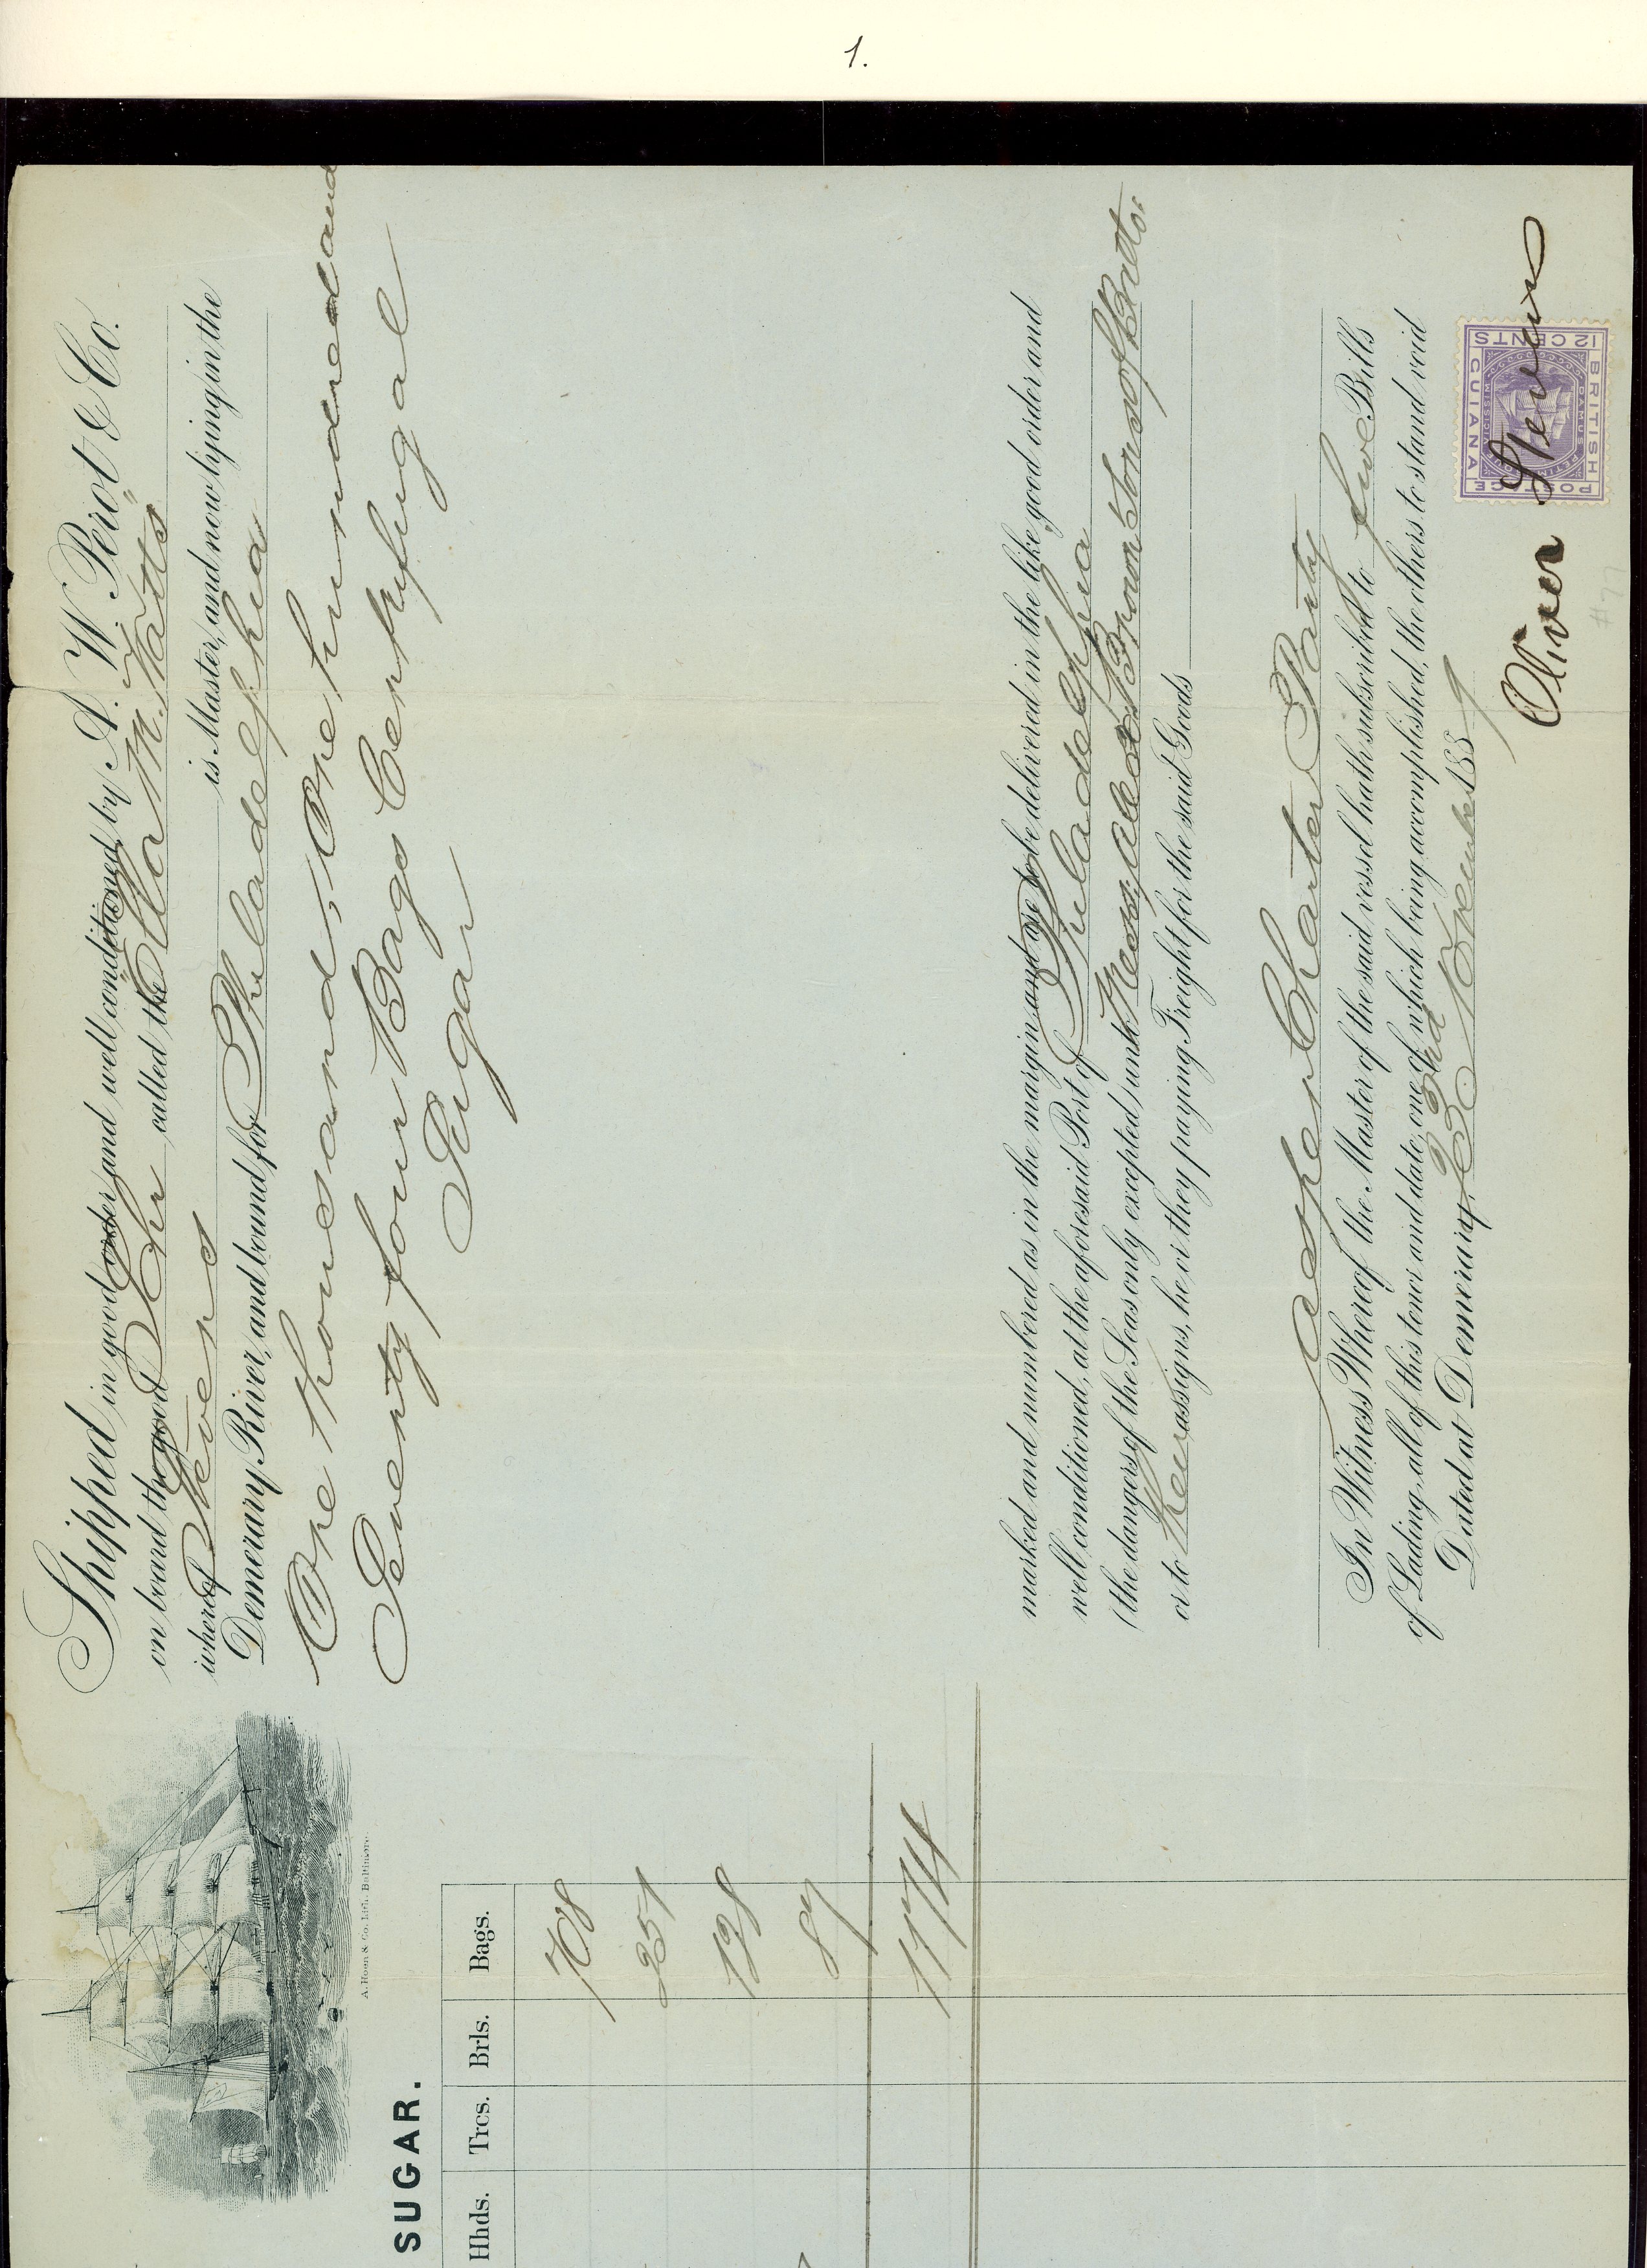 1.
Shipped in good order and well conditioned by A. W. Perot & Co.
on board the good Schr called the "Ella M. Watts"
whereof Stevens is Master, and now lying in the
Demerary River, and bound for Philadelphia
One thousand, One hundred and
Seventy four Bags Centrifugal
Sugar
marked and numbered as in the margin and are to be delivered in the like good order and
well conditioned, at the aforesaid Port of Philadelphia
(the dangers of the Seas only excepted) unto Messrs Alexr Brown & Sons of Balto.
or to their assigns, he or they paying Freight for the said Goods
as per Charter Party
In Witness Whereof the Master of the said vessel hath subscribed to five Bills
of Lading, all of this tenor and date, one of which being accomplished, the others to stand void
Dated at Demerary, 23rd November 1889
Oliver Stevens
BRITISH
GUIANA
POSTAGE
12 CENTS
#77
A. Hoen & Co. Lith. Baltimore.
SUGAR.
Hhds. Trcs. Brls. Bags.
708
251
128
87
1174